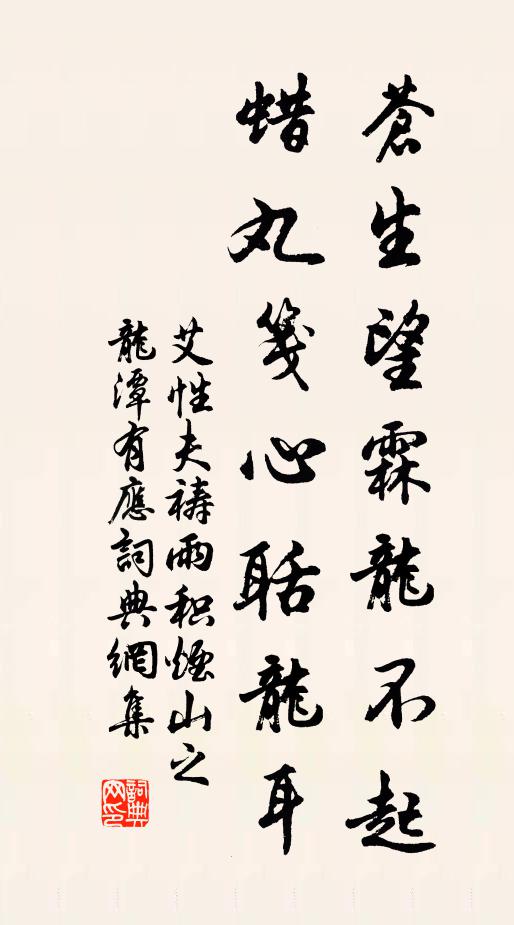 蒼生望霖龍不起
蜡丸箋心聒龍耳
艾性夫禱雨积烟山之
龍潭有應詞典網集
詞典网印